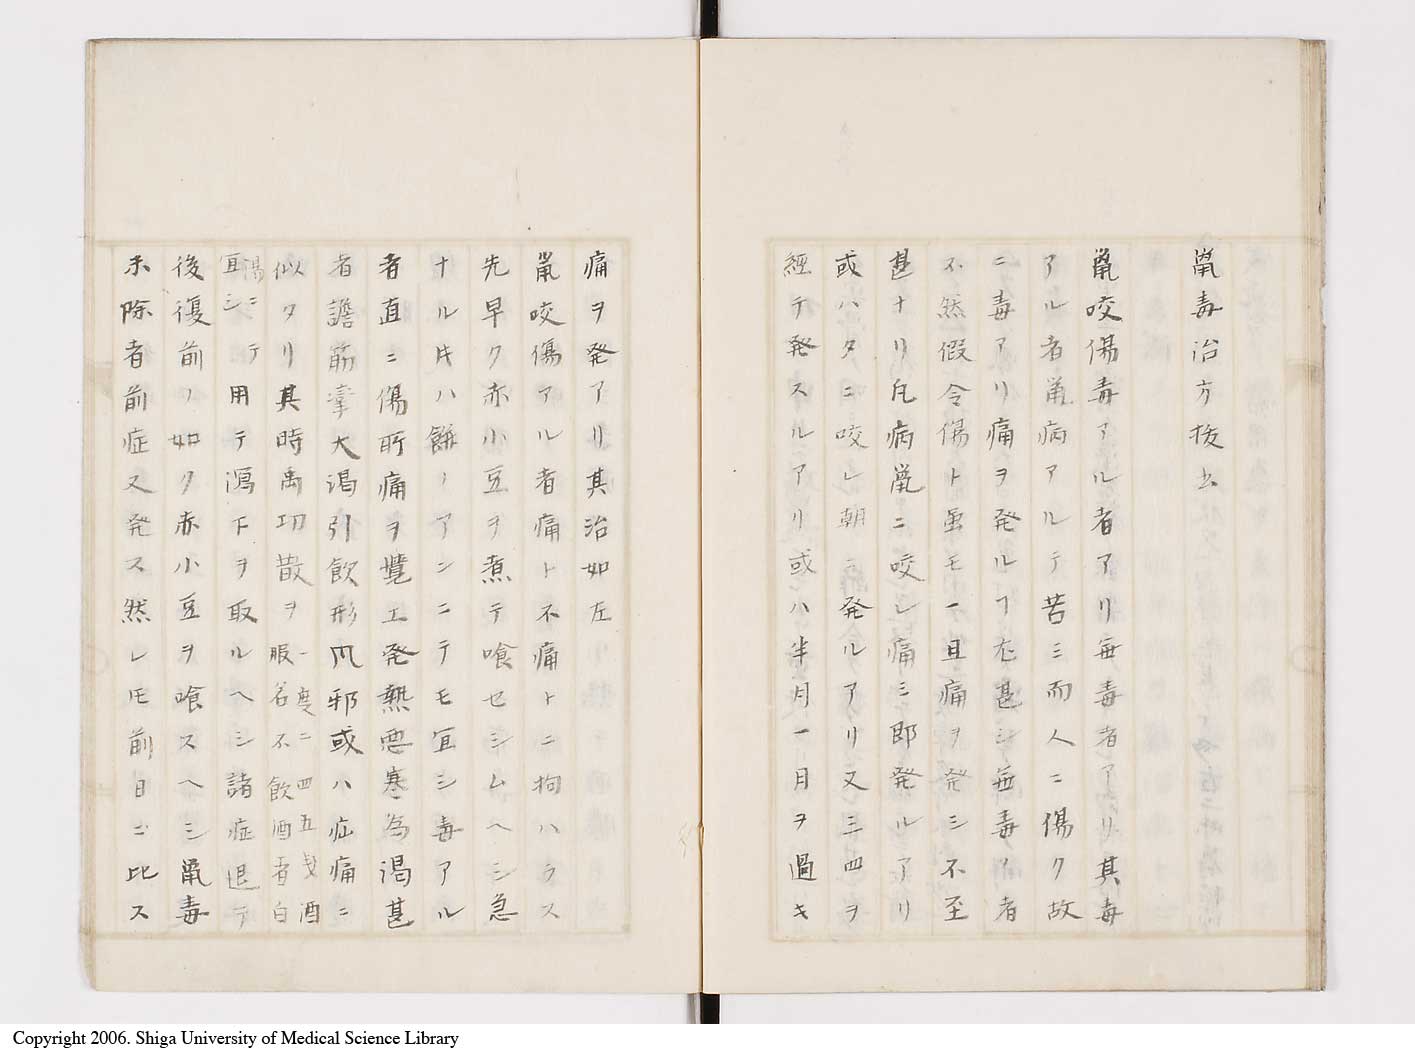 鼠毒治方抜出
鼠咬傷毒アル者アリ毎毒者アリ其毒
アル者鼠病アルテ苦ミ而人ニ傷ク故
ニ毒アリ痛ヲ発ルヿ尤甚シ毎毒ノ者
不然假令傷ト虽モ一旦痛ヲ発シ不至
甚ナリ凡病鼠ニ咬レ痛ミ即発ルアリ
或ハタニ咬レ朝ニ発ルアリ又三四ヲ
経テ発スルアリ或ハ半月一月ヲ過キ
痛ヲ発アリ其治如左
鼠咬傷アル者痛ト不痛トニ拘ハラス
先早ク赤小豆ヲ煮テ喰セシムヘシ急
ナル片ハ餅ノアンニテモ冝シ毒アル
者直ニ傷所痛ヲ覺エ発熱悪寒為渇甚
者譫筋攣大渇引飲形風邪或ハ疝痛ニ
似タリ其時禹功散ヲ服一度ニ四五戔酒
名不飲酒者白
湯ニテ
冝シ用テ瀉下ヲ取ルヘシ諸症退テ
後復前ノ如ク赤小豆ヲ喰スヘシ鼠毒
未除者前症又発ス然レモ前日ニ比ス
Copyright 2006. Shiga University of Medical Science Library